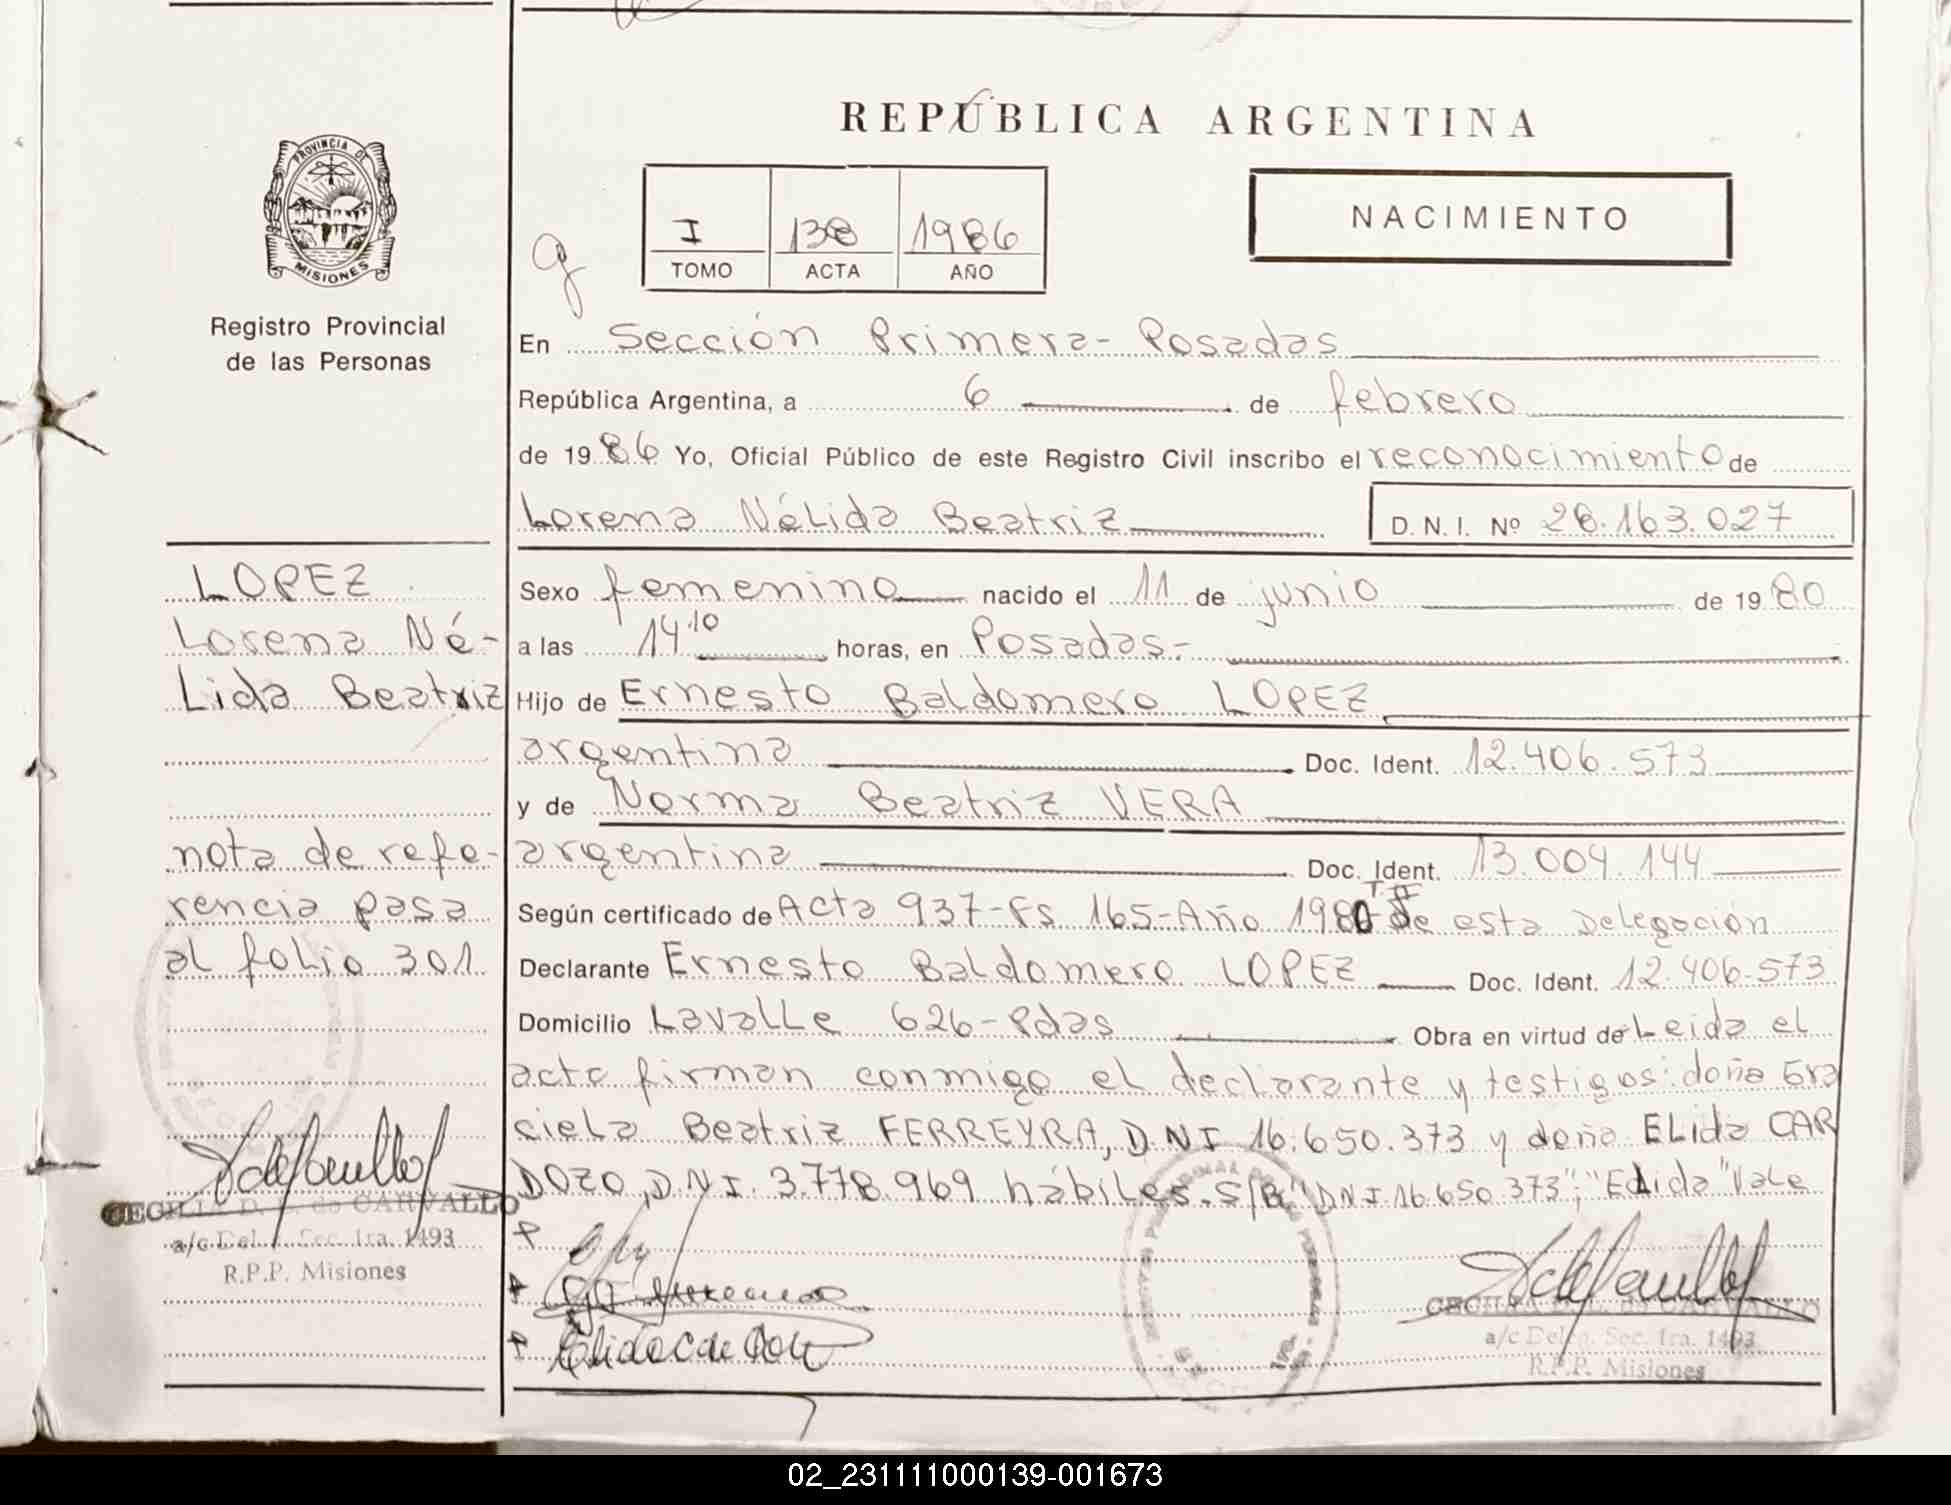 REPÚBLICA ARGENTINA
PROVINCIA DE MISIONES
Registro Provincial
de las Personas
I 138 1986
TOMO ACTA AÑO
NACIMIENTO
En Sección Primera- Posadas
República Argentina, a 6 de febrero
de 1986 Yo, Oficial Público de este Registro Civil inscribo el reconocimiento de
Lorena Nélida Beatriz D. N. I. Nº 28.163.027
LOPEZ
Lorena Né-
Lida Beatriz
Sexo femenino nacido el 11 de junio de 1980
a las 14.10 horas, en Posadas.-
Hijo de Ernesto Baldomero LOPEZ
argentina Doc. Ident. 12.406.573
y de Norma Beatriz VERA
argentina Doc. Ident. 13.004.144
Según certificado de Acta 937-Fs 165-Año 1980-T II de esta Delegación
Declarante Ernesto Baldomero LOPEZ Doc. Ident. 12.406.573
Domicilio Lavalle 626-Pdas Obra en virtud de Leida el
acta firman conmigo el declarante y testigos: doña Gra
ciela Beatriz FERREYRA, D.N.I 16.650.373 y doña ELida CAR
DOZO, D.N.I. 3.778.969 hábiles. S/B: "DNI 16.650.373"; "Elida" Vale
nota de refe-
rencia pasa
al folio 301
CECILIA D. de CARVALLO
a/c Del. Sec. 1ra. 1493
R.P.P. Misiones
CECILIA D. de CARVALLO
a/c Deleg. Sec. 1ra. 1493
R.P.P. Misiones
02_231111000139-001673